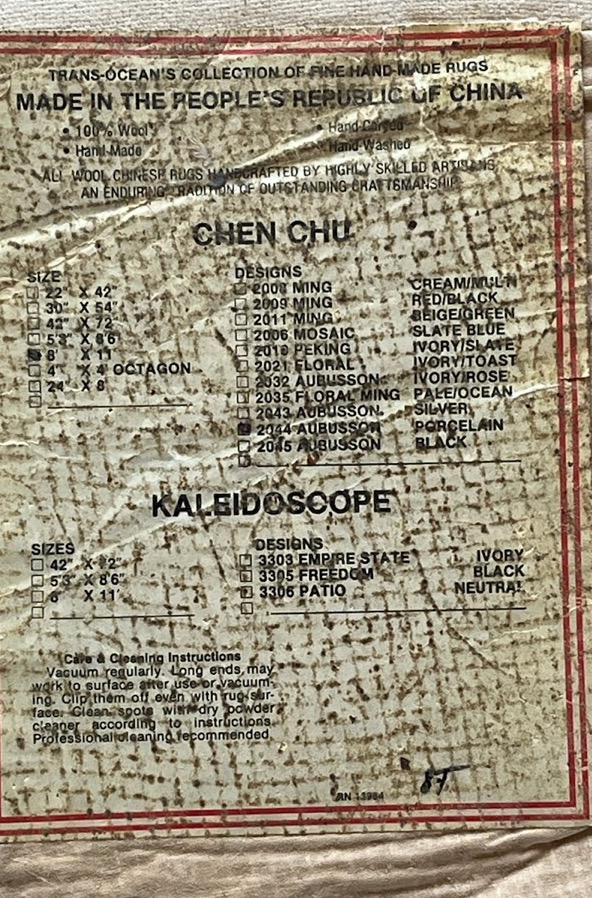 TRANS-OCEAN'S COLLECTION OF FINE HAND-MADE RUGS
MADE IN THE PEOPLE'S REPUBLIC OF CHINA
• 100% Wool • Hand-Carved
• Hand-Made • Hand-Washed
ALL WOOL CHINESE RUGS HANDCRAFTED BY HIGHLY SKILLED ARTISANS
AN ENDURING TRADITION OF OUTSTANDING CRAFTSMANSHIP
CHEN CHU
SIZE
22" X 42"
30" X 54"
42" X 72"
5'3" X 8'6"
8' X 11'
4' X 4' OCTAGON
24" X 8'
DESIGNS
2008 MING CREAM/MULTI
2009 MING RED/BLACK
2011 MING BEIGE/GREEN
2006 MOSAIC SLATE BLUE
2010 PEKING IVORY/SLATE
2021 FLORAL IVORY/TOAST
2032 AUBUSSON IVORY/ROSE
2035 FLORAL MING PALE/OCEAN
2043 AUBUSSON SILVER
2044 AUBUSSON PORCELAIN
2045 AUBUSSON BLACK
KALEIDOSCOPE
SIZES
42" X 72"
5'3" X 8'6"
8' X 11'
DESIGNS
3303 EMPIRE STATE IVORY
3305 FREEDOM BLACK
3306 PATIO NEUTRAL
Care & Cleaning Instructions
Vacuum regularly. Long ends may
work to surface after use or vacuum-
ing. Clip them off even with rug sur-
face. Clean spots with dry powder
cleaner according to instructions.
Professional cleaning recommended.
RN 13984